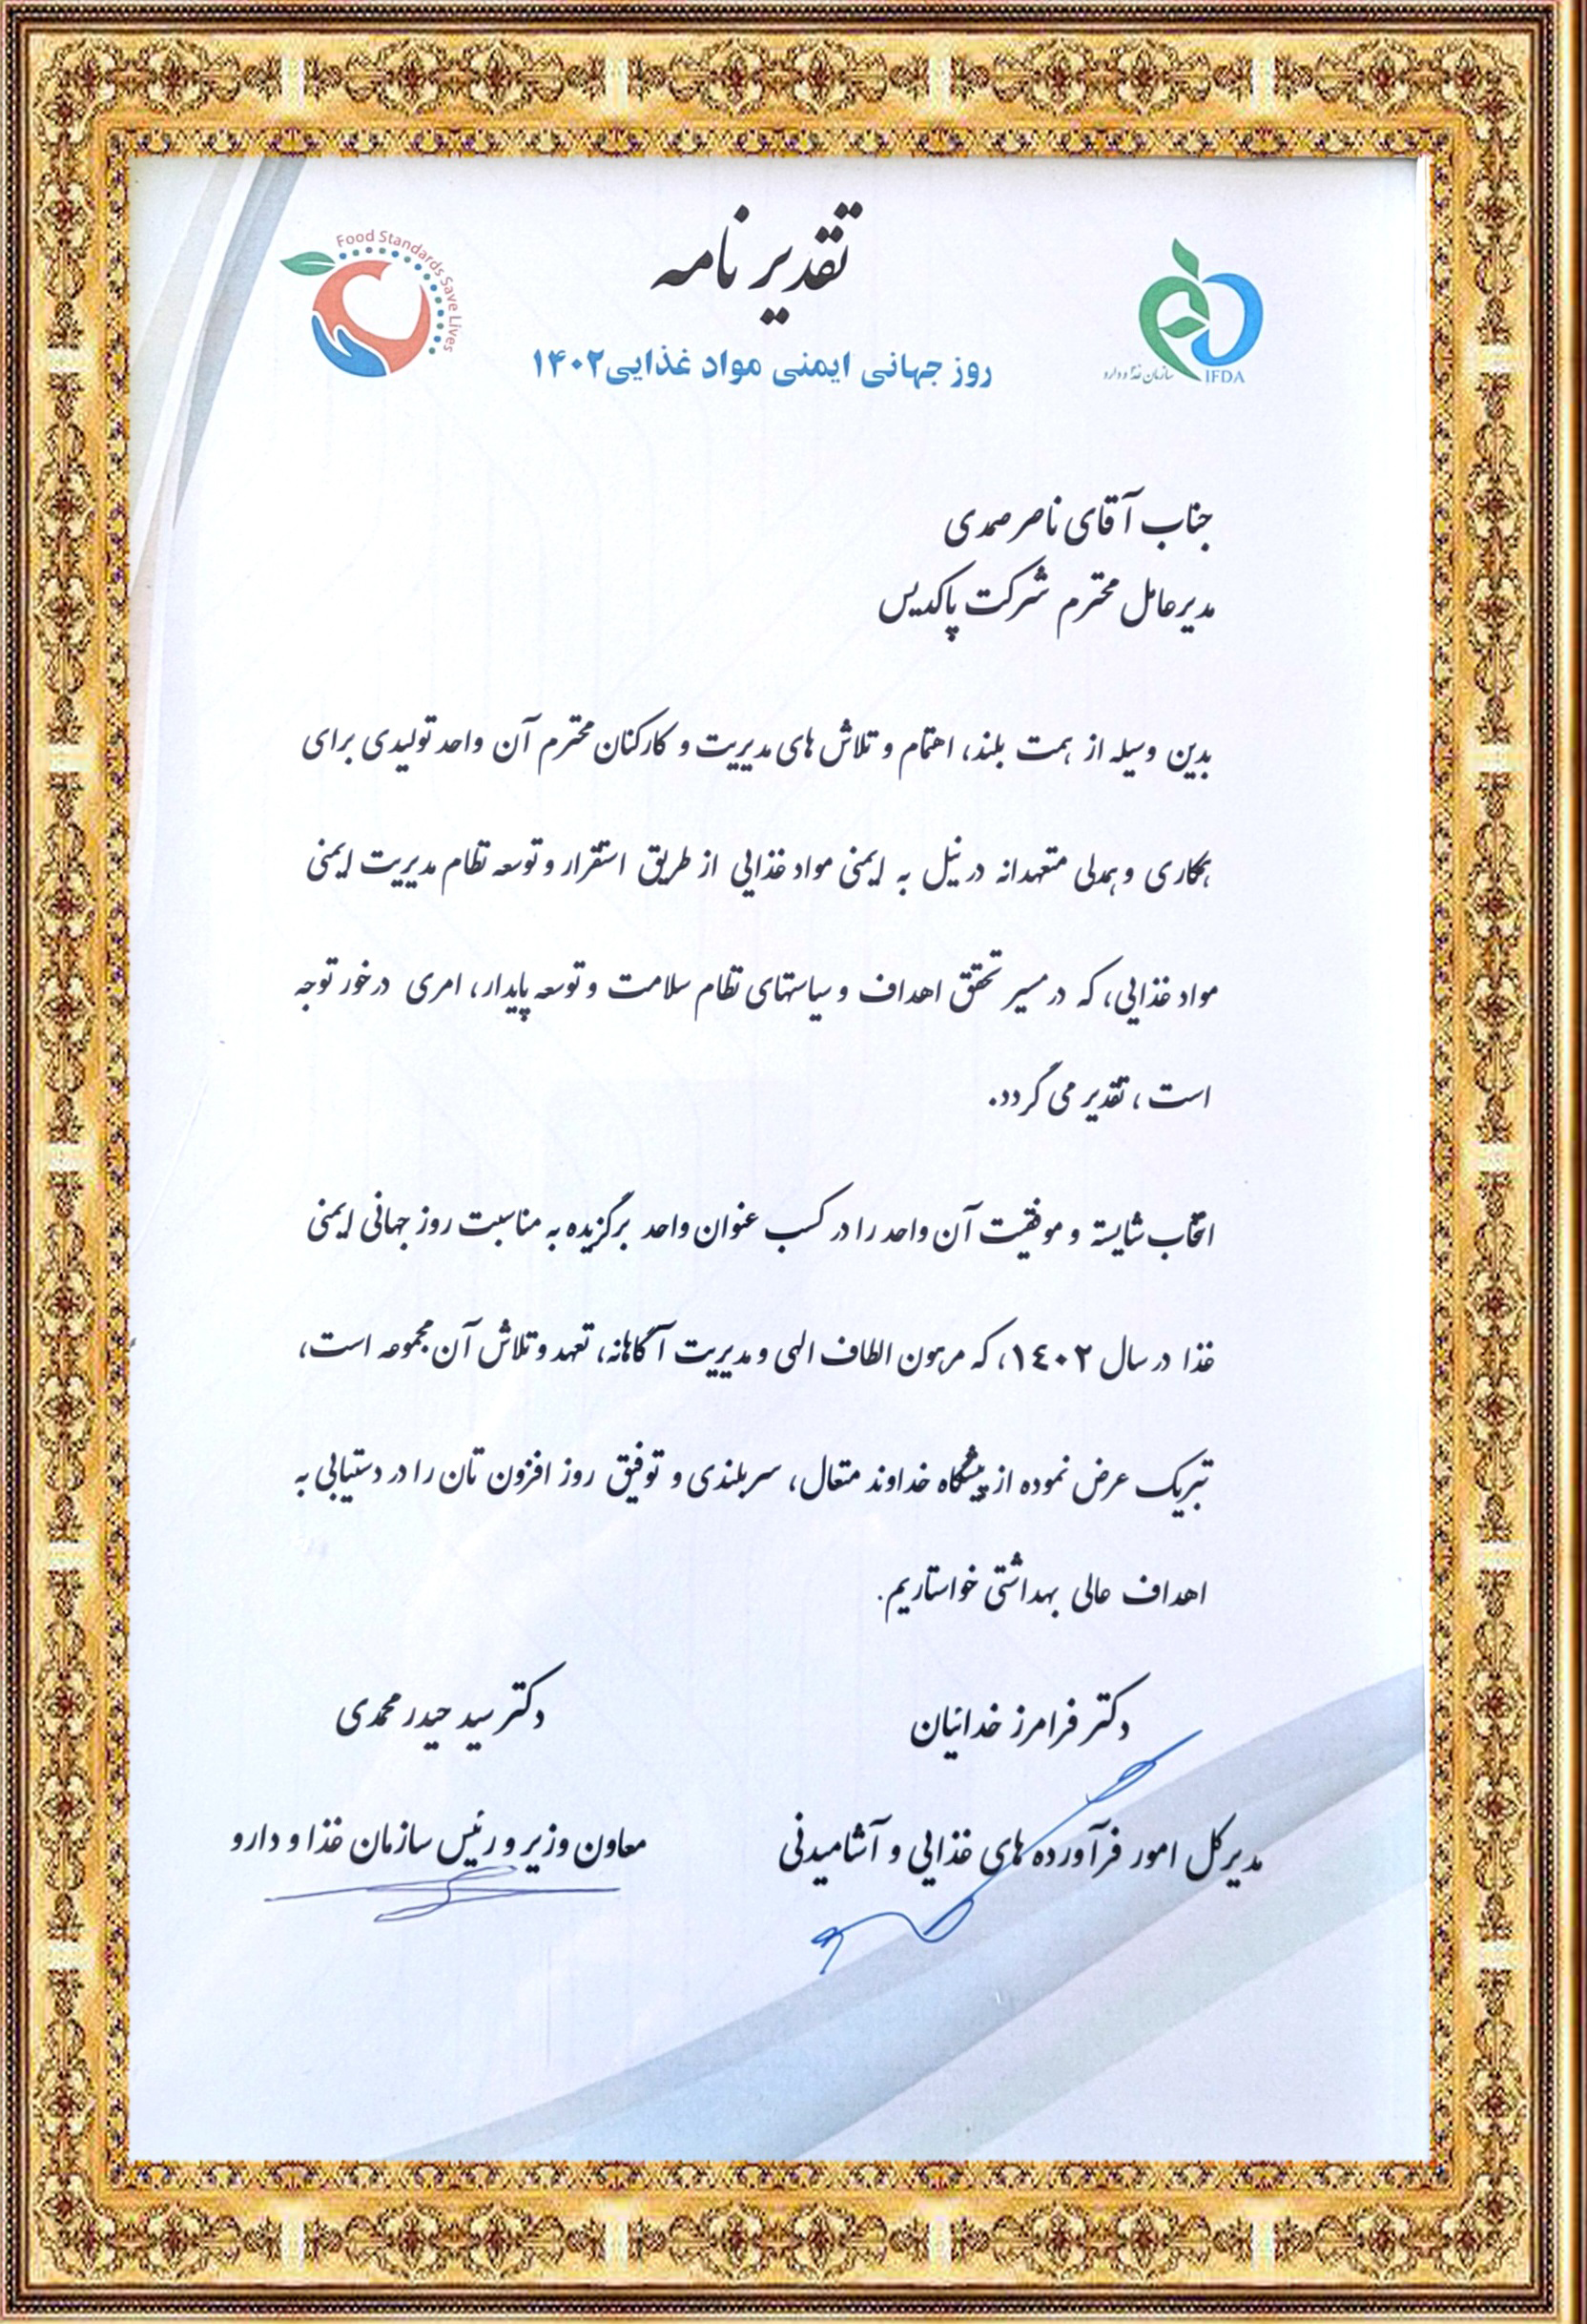 تقدیر نامه
Food Standards Save Lives
روز جهانی ایمنی مواد غذایی ۱۴۰۲
سازمان غذا و دارو
IFDA
جناب آقای ناصر صمدی
مدیرعامل محترم شرکت پاکدیس
بدین وسیله از همت بلند، اهتمام و تلاش های مدیریت و کارکنان محترم آن واحد تولیدی برای
همکاری و همدلی متعهدانه در نیل به ایمنی مواد غذایی از طریق استقرار و توسعه نظام مدیریت ایمنی
مواد غذایی، که در مسیر تحقق اهداف و سیاستهای نظام سلامت و توسعه پایدار، امری درخور توجه
است، تقدیر می گردد.
انتخاب شایسته و موفقیت آن واحد را در کسب عنوان واحد برگزیده به مناسبت روز جهانی ایمنی
غذا در سال ۱٤۰۲، که مرهون الطاف الهی و مدیریت آگاهانه، تعهد و تلاش آن مجموعه است،
تبریک عرض نموده از پیشگاه خداوند متعال، سربلندی و توفیق روز افزون تان را در دستیابی به
اهداف عالی بهداشتی خواستاریم.
دکتر فرامرز خدائیان
مدیرکل امور فرآورده های غذایی و آشامیدنی
دکتر سید حیدر محمدی
معاون وزیر و رئیس سازمان غذا و دارو